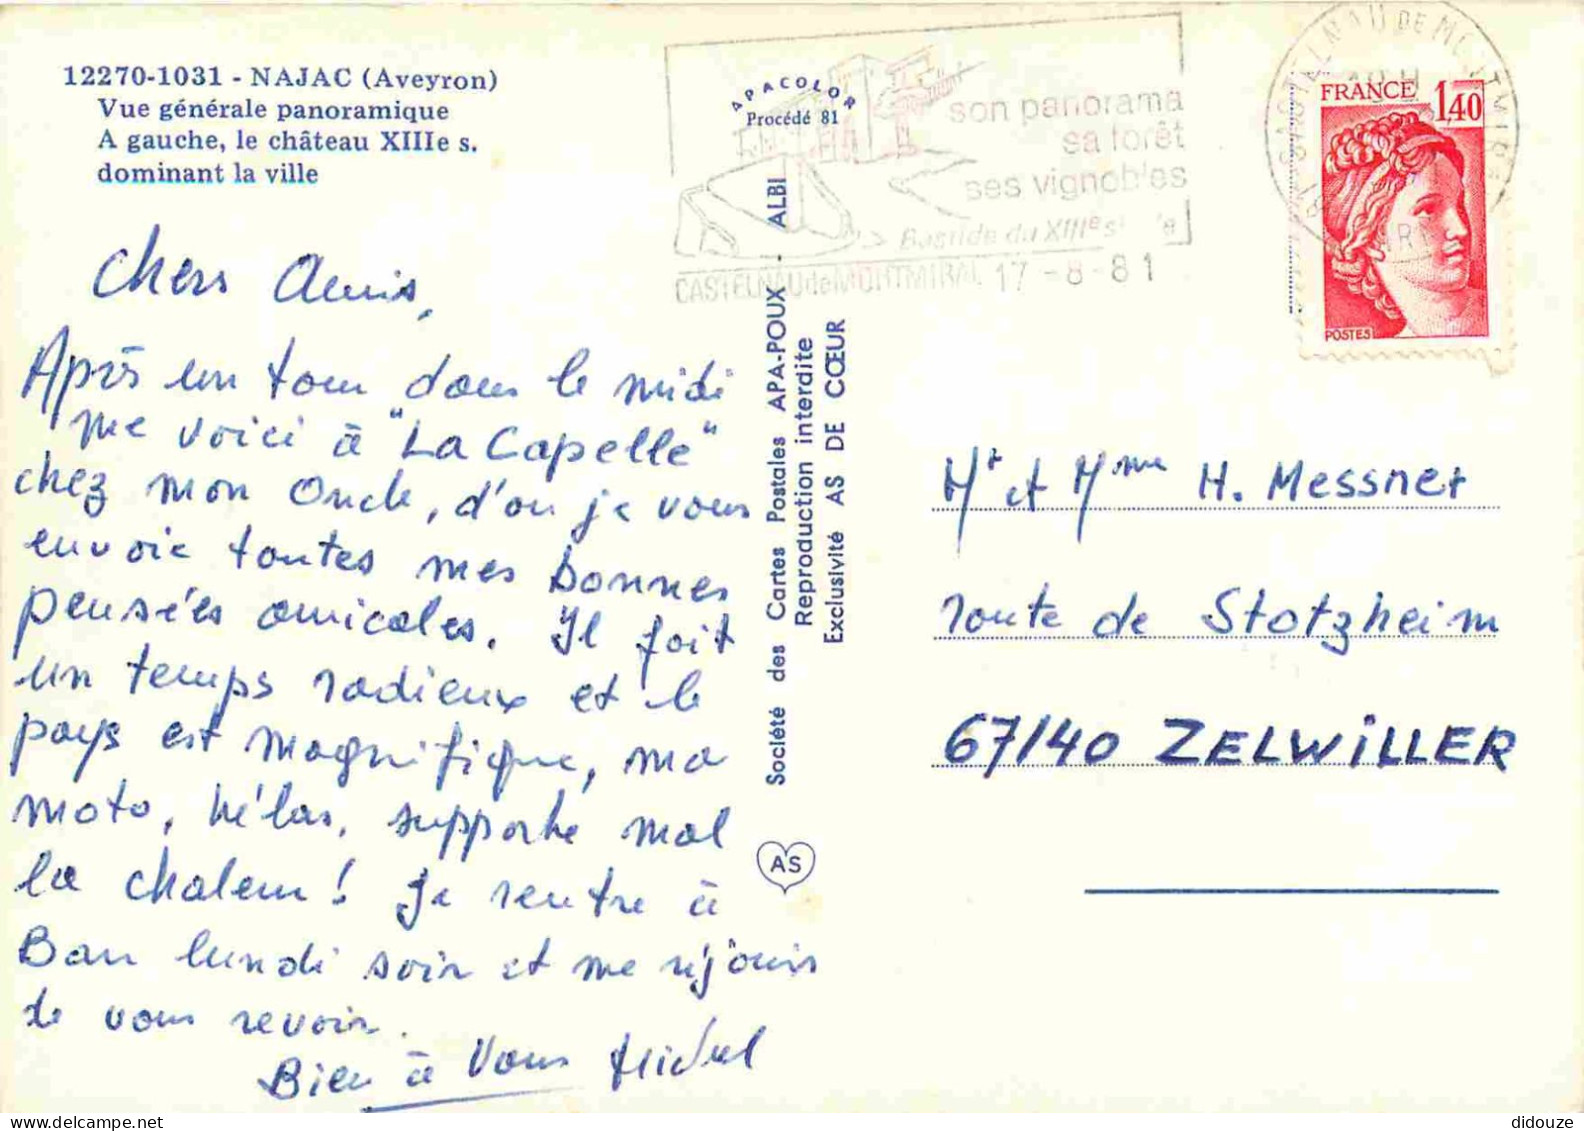 12270-1031 - NAJAC (Aveyron)
Vue générale panoramique
A gauche, le château XIIIe s.
dominant la ville
APACOLOR
Procédé 81
son panorama
sa forêt
ses vignobles
Bastide du XIIIe s
CASTELNAU de MONTMIRAL 17-8-81
CASTELNAU DE MONTMIRAL
18 H
FRANCE 1,40
POSTES
Chers Amis,
Après un tour dans le midi
me voici à "La Capelle"
chez mon Oncle, d'où je vous
envoie toutes mes bonnes
pensées amicales. Il fait
un temps radieux et le
pays est magnifique, ma
moto, hélas, supporte mal
la chaleur! Je rentre à
Barr lundi soir et me réjouis
de vous revoir.
Bien à Vous Michel
Société des Cartes Postales APA-POUX - ALBI
Reproduction interdite
Exclusivité AS DE CŒUR
AS
Mr et Mme H. Messner
route de Stotzheim
67140 ZELWILLER
didouze
www.delcampe.net